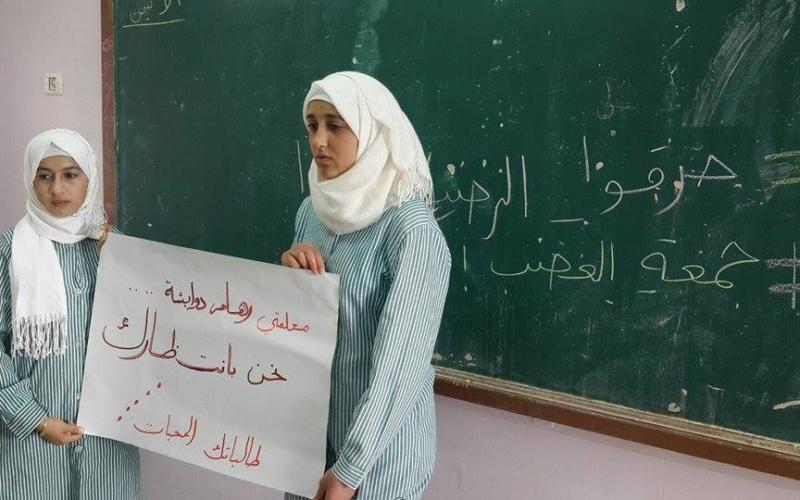 الاثنين
حرقوا الرضيع
جمعة الغضب
معلمتي رهام دوابشة ....
نحن بانتظارك
طالباتك المحبات